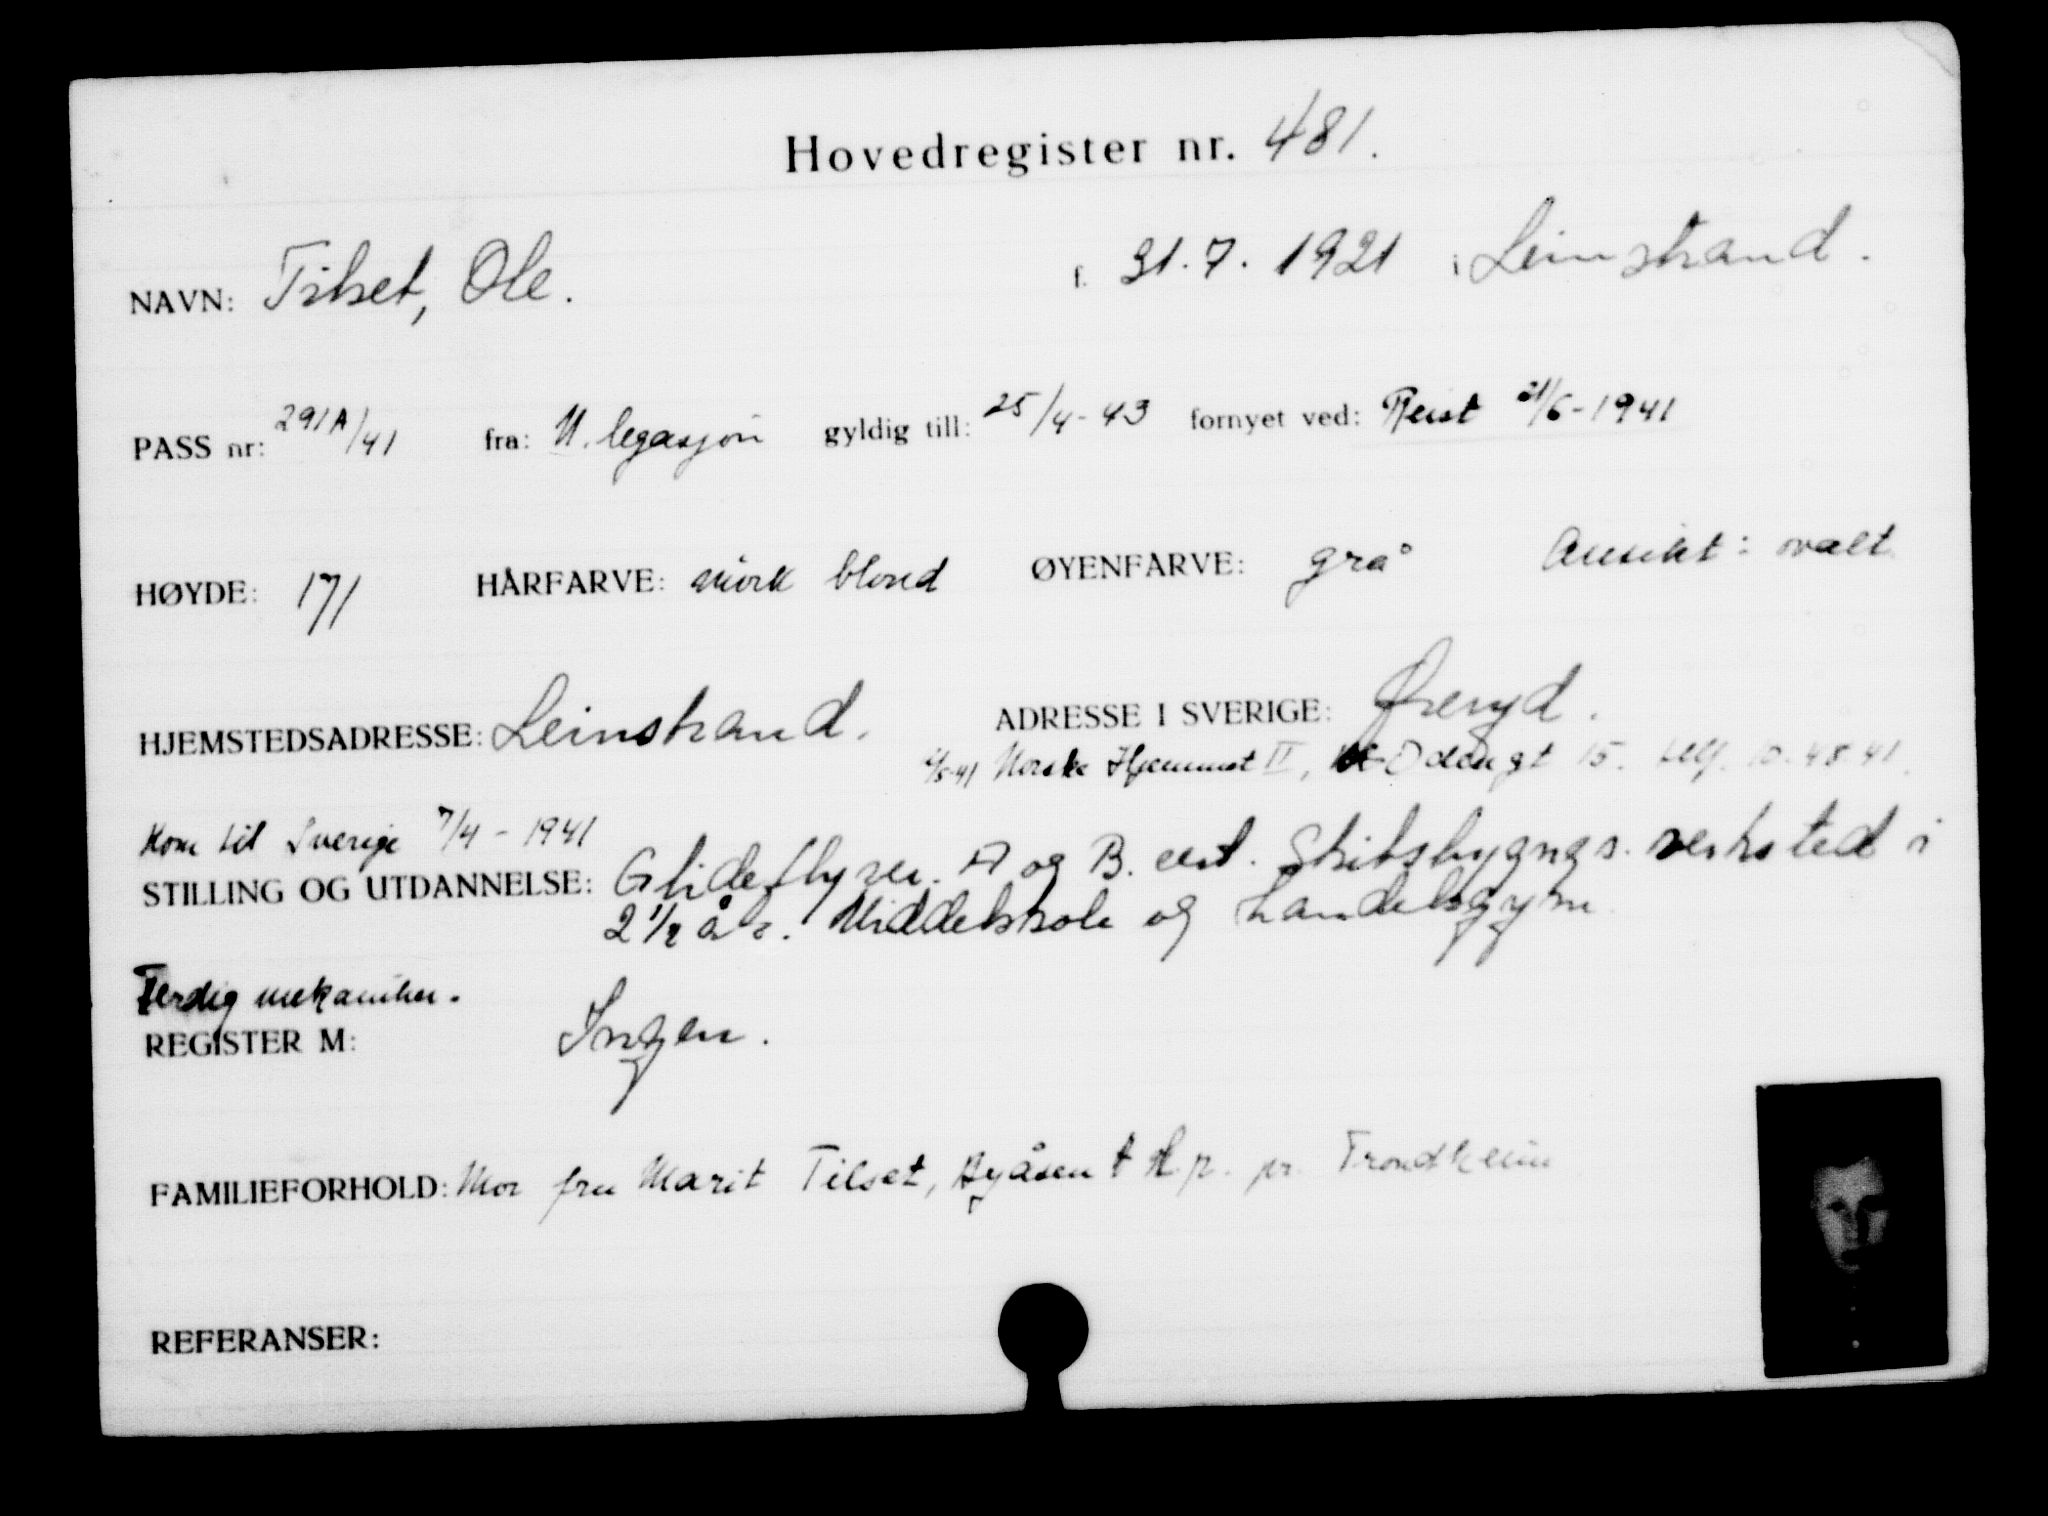 Hovedregister nr. 481.
NAVN: Tilset, Ole. f. 31.7.1921 i Leinstrand.
PASS nr: 291A/41 fra: N. legasjon gyldig till: 25/4-43 fornyet ved: Reist 21/6-1941
HØYDE: 171 HÅRFARVE: mörk blond ØYENFARVE: grå Ansikt: ovalt
HJEMSTEDSADRESSE: Leinstrand. ADRESSE I SVERIGE: Øreryd.
Norske Hjemmet II, Odengt 15. telf. 10.48.41.
Kom til Sverige 7/4-1941
STILLING OG UTDANNELSE: Glideflyver. A og B. cert. Skibsbygngs. verksted i
2 1/2 år. Middelskole og Handelsgymn.
Ferdig mekaniker.
REGISTER M: Ingen.
FAMILIEFORHOLD: Mor fru Marit Tilset, Byåsen t H.p. pr. Trondheim
REFERANSER: